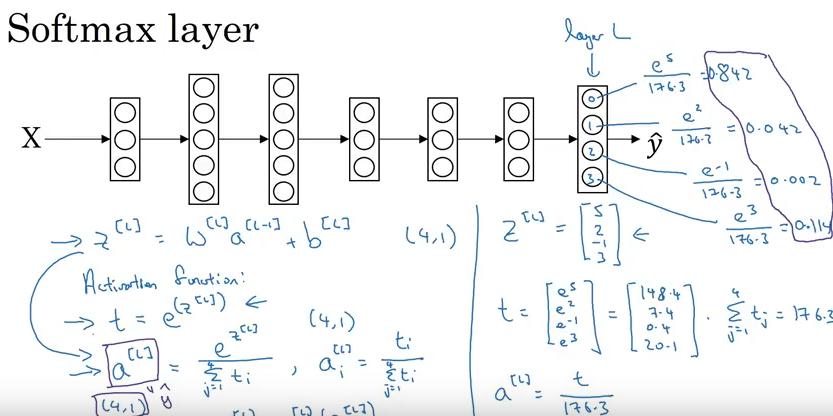 Softmax layer
layer L
X
0
1
2
3
ŷ
e^5/176.3 = 0.842
e^2/176.3 = 0.042
e^-1/176.3 = 0.002
e^3/176.3 = 0.114
→ z^[L] = W^[L] a^[L-1] + b^[L] (4,1)
Activation function:
→ t = e^(z^[L]) ← (4,1)
→ a^[L] = e^z^[L] / Σ_{j=1}^4 t_i , a_i^[L] = t_i / Σ_{j=1}^4 t_i
(4,1) ŷ
z^[L] = [5 2 -1 3] ←
t = [e^5 e^2 e^-1 e^3] = [148.4 7.4 0.4 20.1] . Σ_{j=1}^4 t_j = 176.3
a^[L] = t / 176.3